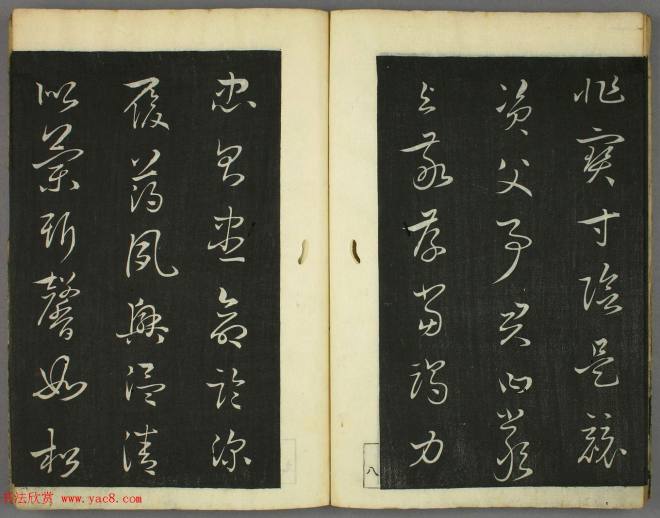 非寶寸陰是競
資父事君曰嚴
與敬孝當竭力
八
忠則盡命臨深
履薄夙興溫清
似蘭斯馨如松
书法欣赏 www.yac8.com